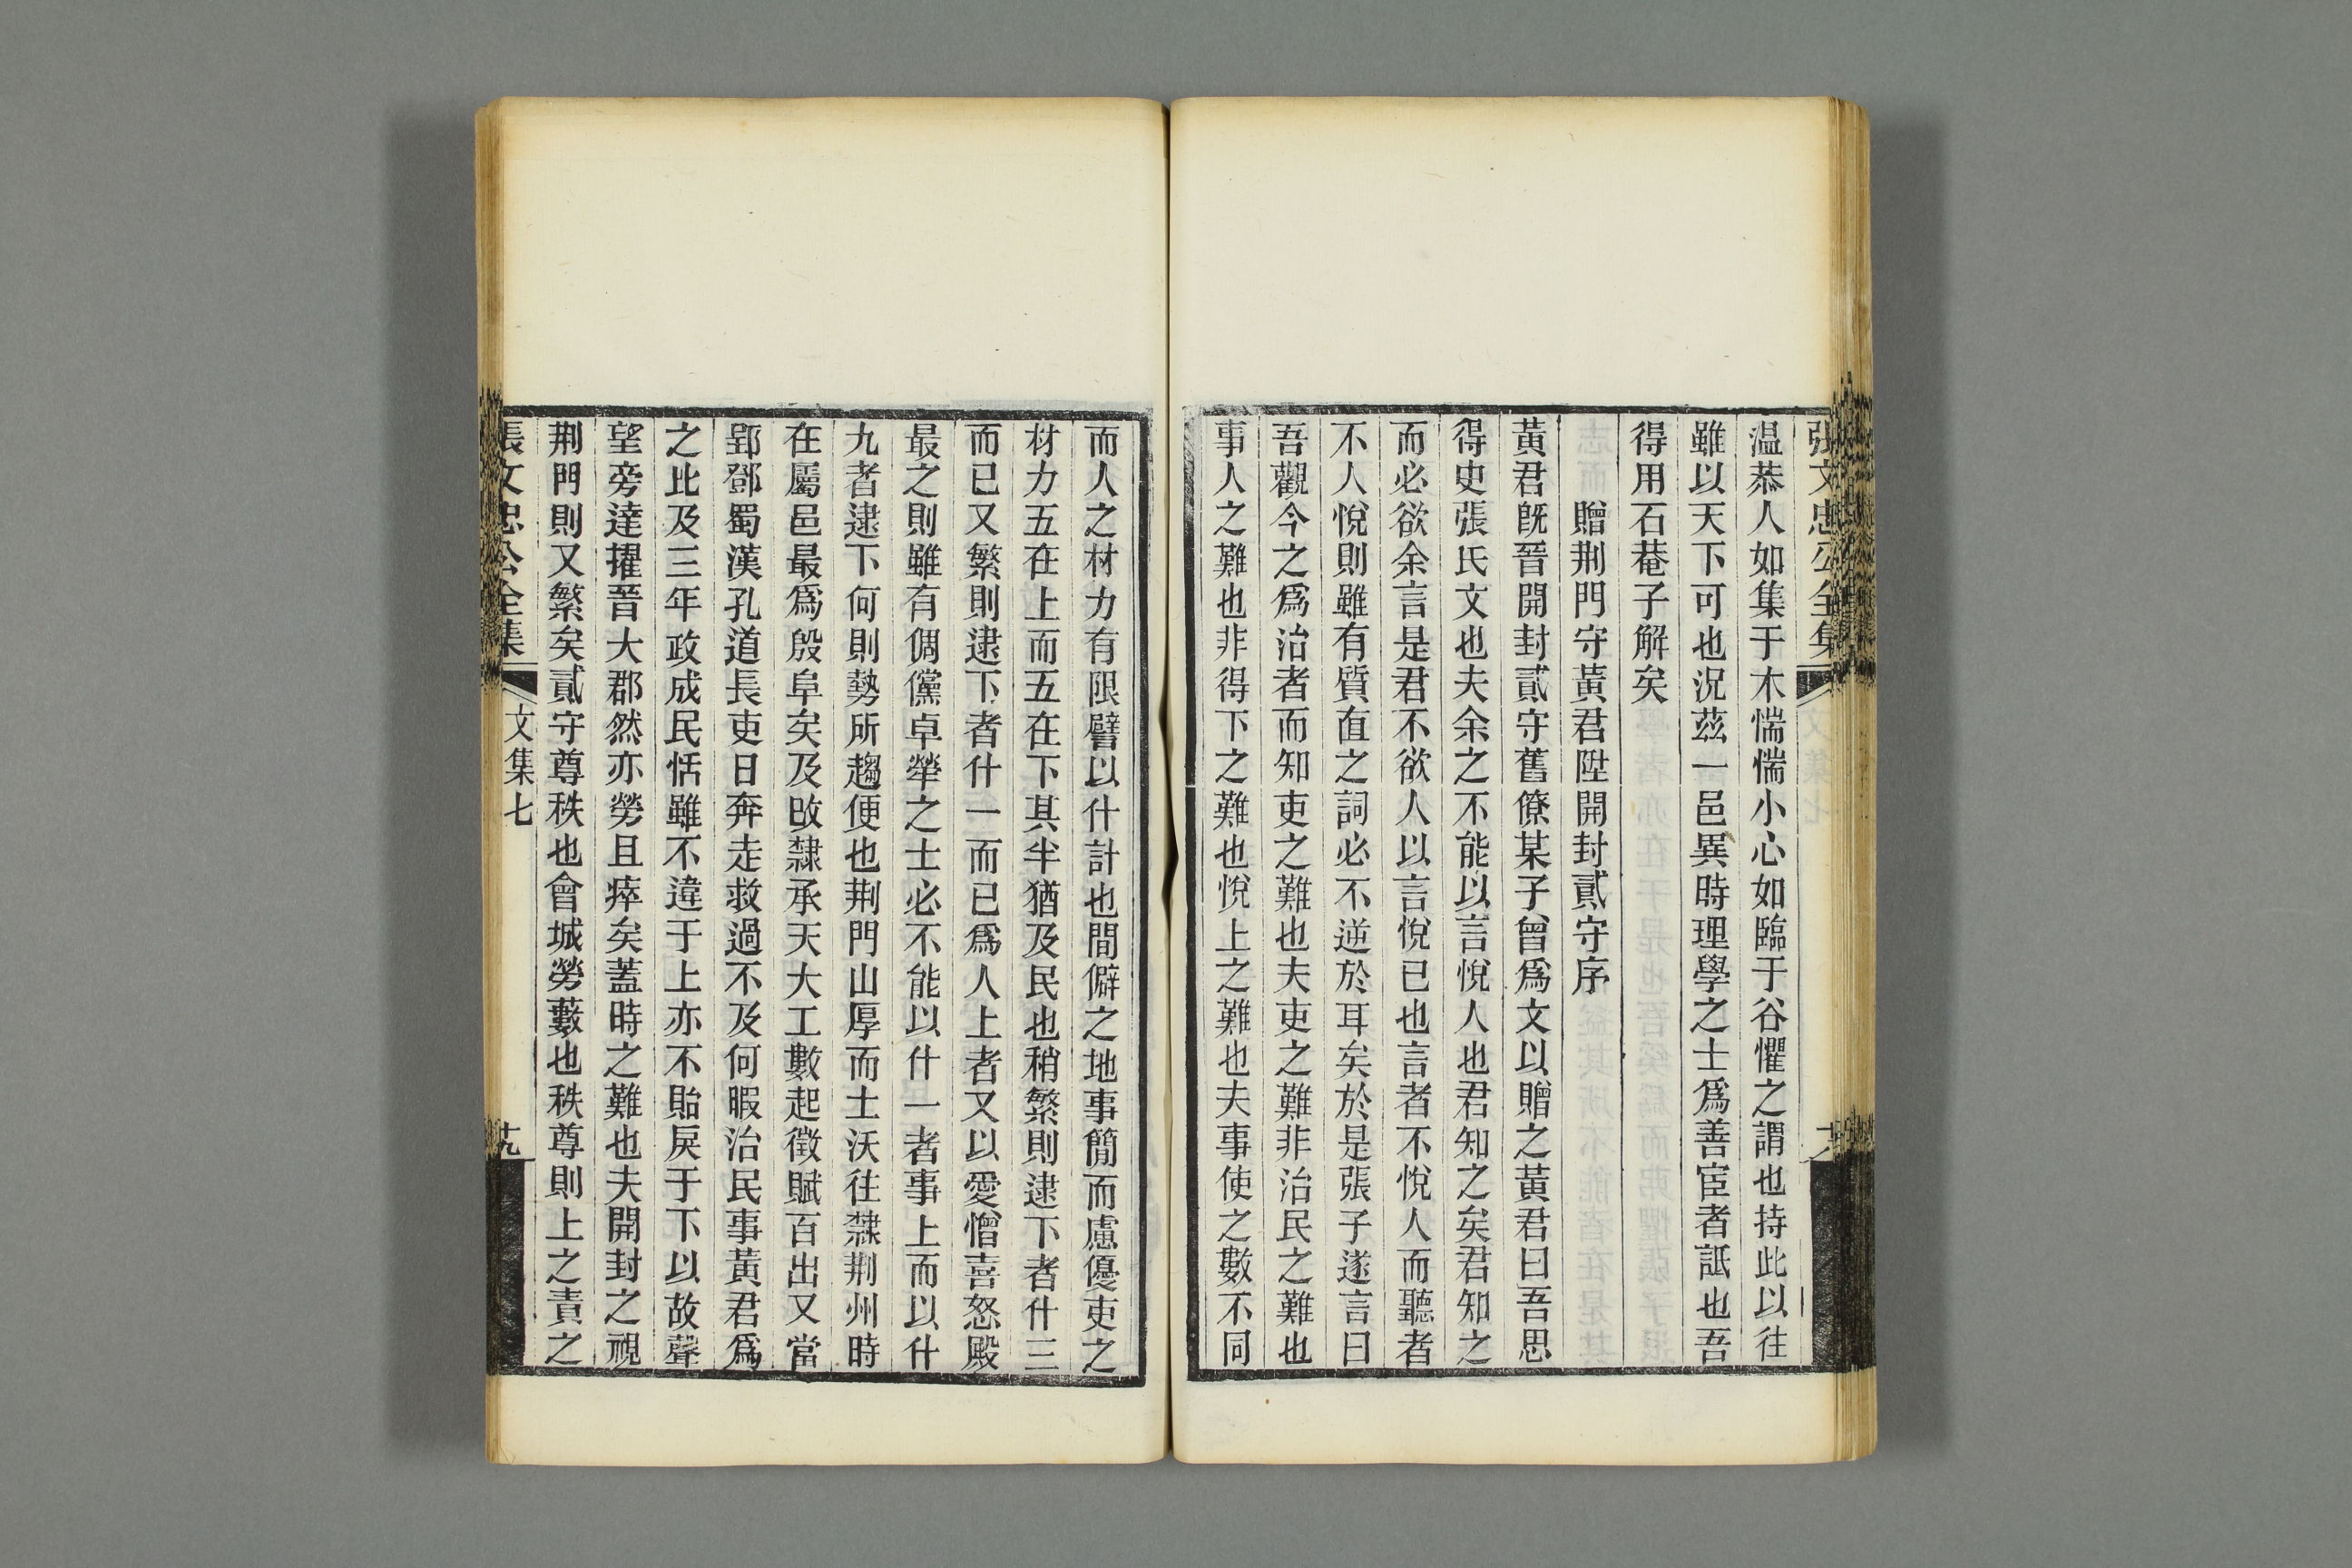 張文忠公全集
溫恭人如集于木惴惴小心如臨于谷懼之謂也持此以往
雖以天下可也況茲一邑異時理學之士爲善宦者詆也吾
得用石菴子解矣
贈荆門守黃君陞開封貳守序
黃君旣晉開封貳守舊僚某子曾爲文以贈之黃君曰吾思
得史張氏文也夫余之不能以言悅人也君知之矣君知之
而必欲余言是君不欲人以言悅已也言者不悅人而聽者
不人悅則雖有質直之詞必不逆於耳矣於是張子遂言曰
吾觀今之爲治者而知吏之難也夫吏之難非治民之難也
事人之難也非得下之難也悅上之難也夫事使之數不同
而人之材力有限譬以什計也間僻之地事簡而慮優吏之
材力五在上而五在下其半猶及民也稍繁則逮下者什三
而已又繁則逮下者什一而已爲人上者又以愛憎喜怒殿
最之則雖有倜儻卓犖之士必不能以什一者事上而以什
九者逮下何則勢所趨便也荆門山厚而土沃往隸荆州時
在屬邑最爲殷阜矣及改隸承天大工數起徵賦百出又當
郢鄧蜀漢孔道長吏日奔走救過不及何暇治民事黃君爲
之比及三年政成民恬雖不違于上亦不貽戾于下以故聲
望旁達擢晉大郡然亦勞且瘁矣蓋時之難也夫開封之視
荆門則又繁矣貳守尊秩也會城勞藪也秩尊則上之責之
張文忠公全集
文集七
十九